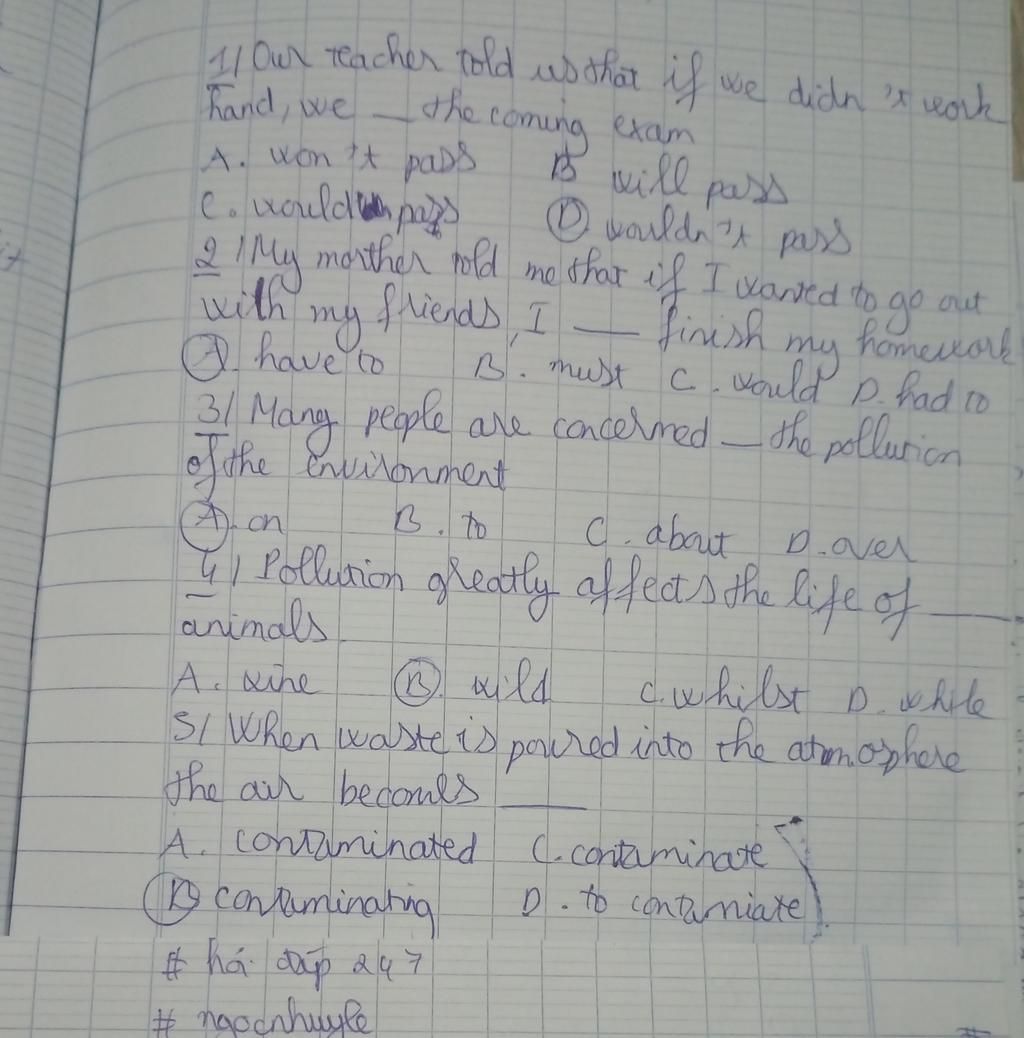 1/ Our teacher told us that if we didn't work
hand, we _ the coming exam
A. won't pass B will pass
C. would pass D wouldn't pass
2/ My morther told me that if I wanted to go out
with my friends, I __ finish my homework
A. have to B. must C. would D. had to
3/ Many people are concerned _ the pollution
of the environment
A. on B. to C. about D. over
4/ Pollution greatly affects the life of ___
animals
A. B. wild C. whilst D. while
5/ When waste is poured into the atmosphere
the air becomes ___
A. contaminated C. contaminate
B contaminating D. to contamiate
# há đáp 247
# ngocnhuyle